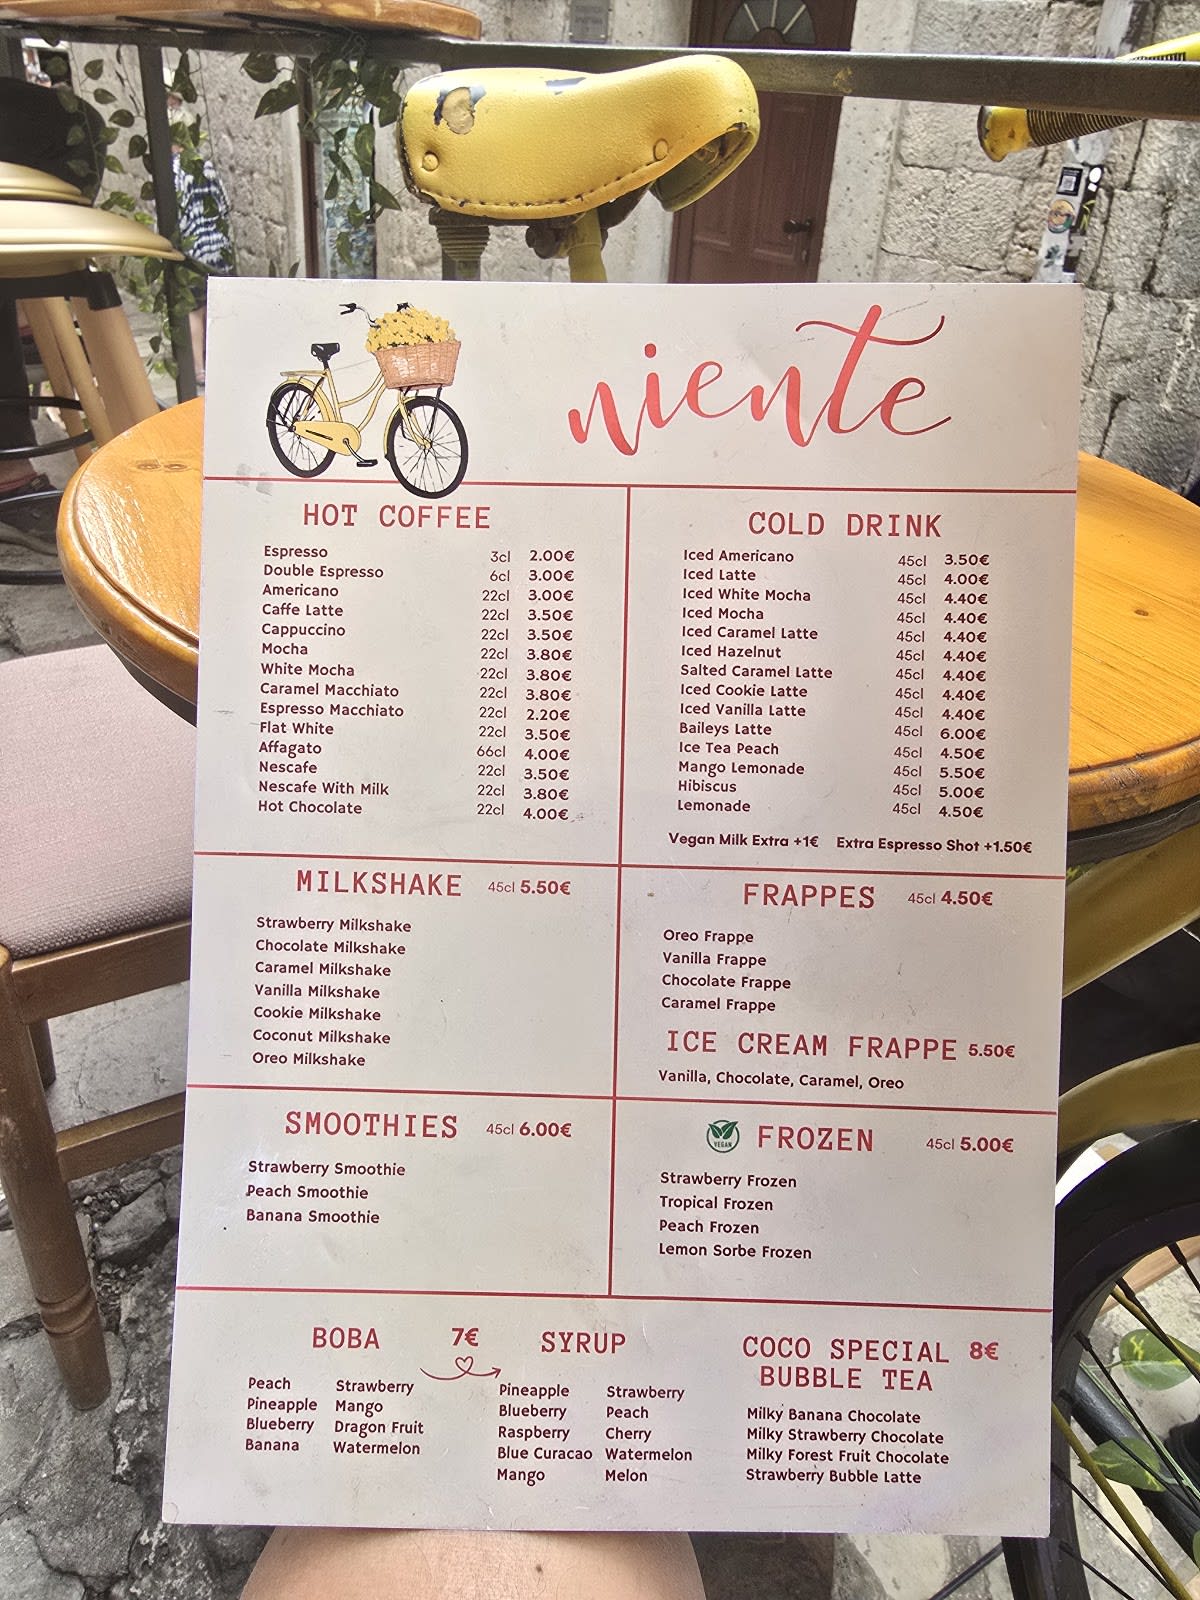 niente
HOT COFFEE
Espresso 3cl 2.00€
Double Espresso 6cl 3.00€
Americano 22cl 3.00€
Caffe Latte 22cl 3.50€
Cappuccino 22cl 3.50€
Mocha 22cl 3.80€
White Mocha 22cl 3.80€
Caramel Macchiato 22cl 3.80€
Espresso Macchiato 22cl 2.20€
Flat White 22cl 3.50€
Affagato 66cl 4.00€
Nescafe 22cl 3.50€
Nescafe With Milk 22cl 3.80€
Hot Chocolate 22cl 4.00€
COLD DRINK
Iced Americano 45cl 3.50€
Iced Latte 45cl 4.00€
Iced White Mocha 45cl 4.40€
Iced Mocha 45cl 4.40€
Iced Caramel Latte 45cl 4.40€
Iced Hazelnut 45cl 4.40€
Salted Caramel Latte 45cl 4.40€
Iced Cookie Latte 45cl 4.40€
Iced Vanilla Latte 45cl 4.40€
Baileys Latte 45cl 6.00€
Ice Tea Peach 45cl 4.50€
Mango Lemonade 45cl 5.50€
Hibiscus 45cl 5.00€
Lemonade 45cl 4.50€
Vegan Milk Extra +1€ Extra Espresso Shot +1.50€
MILKSHAKE 45cl 5.50€
Strawberry Milkshake
Chocolate Milkshake
Caramel Milkshake
Vanilla Milkshake
Cookie Milkshake
Coconut Milkshake
Oreo Milkshake
FRAPPES 45cl 4.50€
Oreo Frappe
Vanilla Frappe
Chocolate Frappe
Caramel Frappe
ICE CREAM FRAPPE 5.50€
Vanilla, Chocolate, Caramel, Oreo
SMOOTHIES 45cl 6.00€
Strawberry Smoothie
Peach Smoothie
Banana Smoothie
VEGAN FROZEN 45cl 5.00€
Strawberry Frozen
Tropical Frozen
Peach Frozen
Lemon Sorbe Frozen
BOBA 7€ SYRUP
Peach Strawberry
Pineapple Mango
Blueberry Dragon Fruit
Banana Watermelon
Pineapple Strawberry
Blueberry Peach
Raspberry Cherry
Blue Curacao Watermelon
Mango Melon
COCO SPECIAL 8€
BUBBLE TEA
Milky Banana Chocolate
Milky Strawberry Chocolate
Milky Forest Fruit Chocolate
Strawberry Bubble Latte